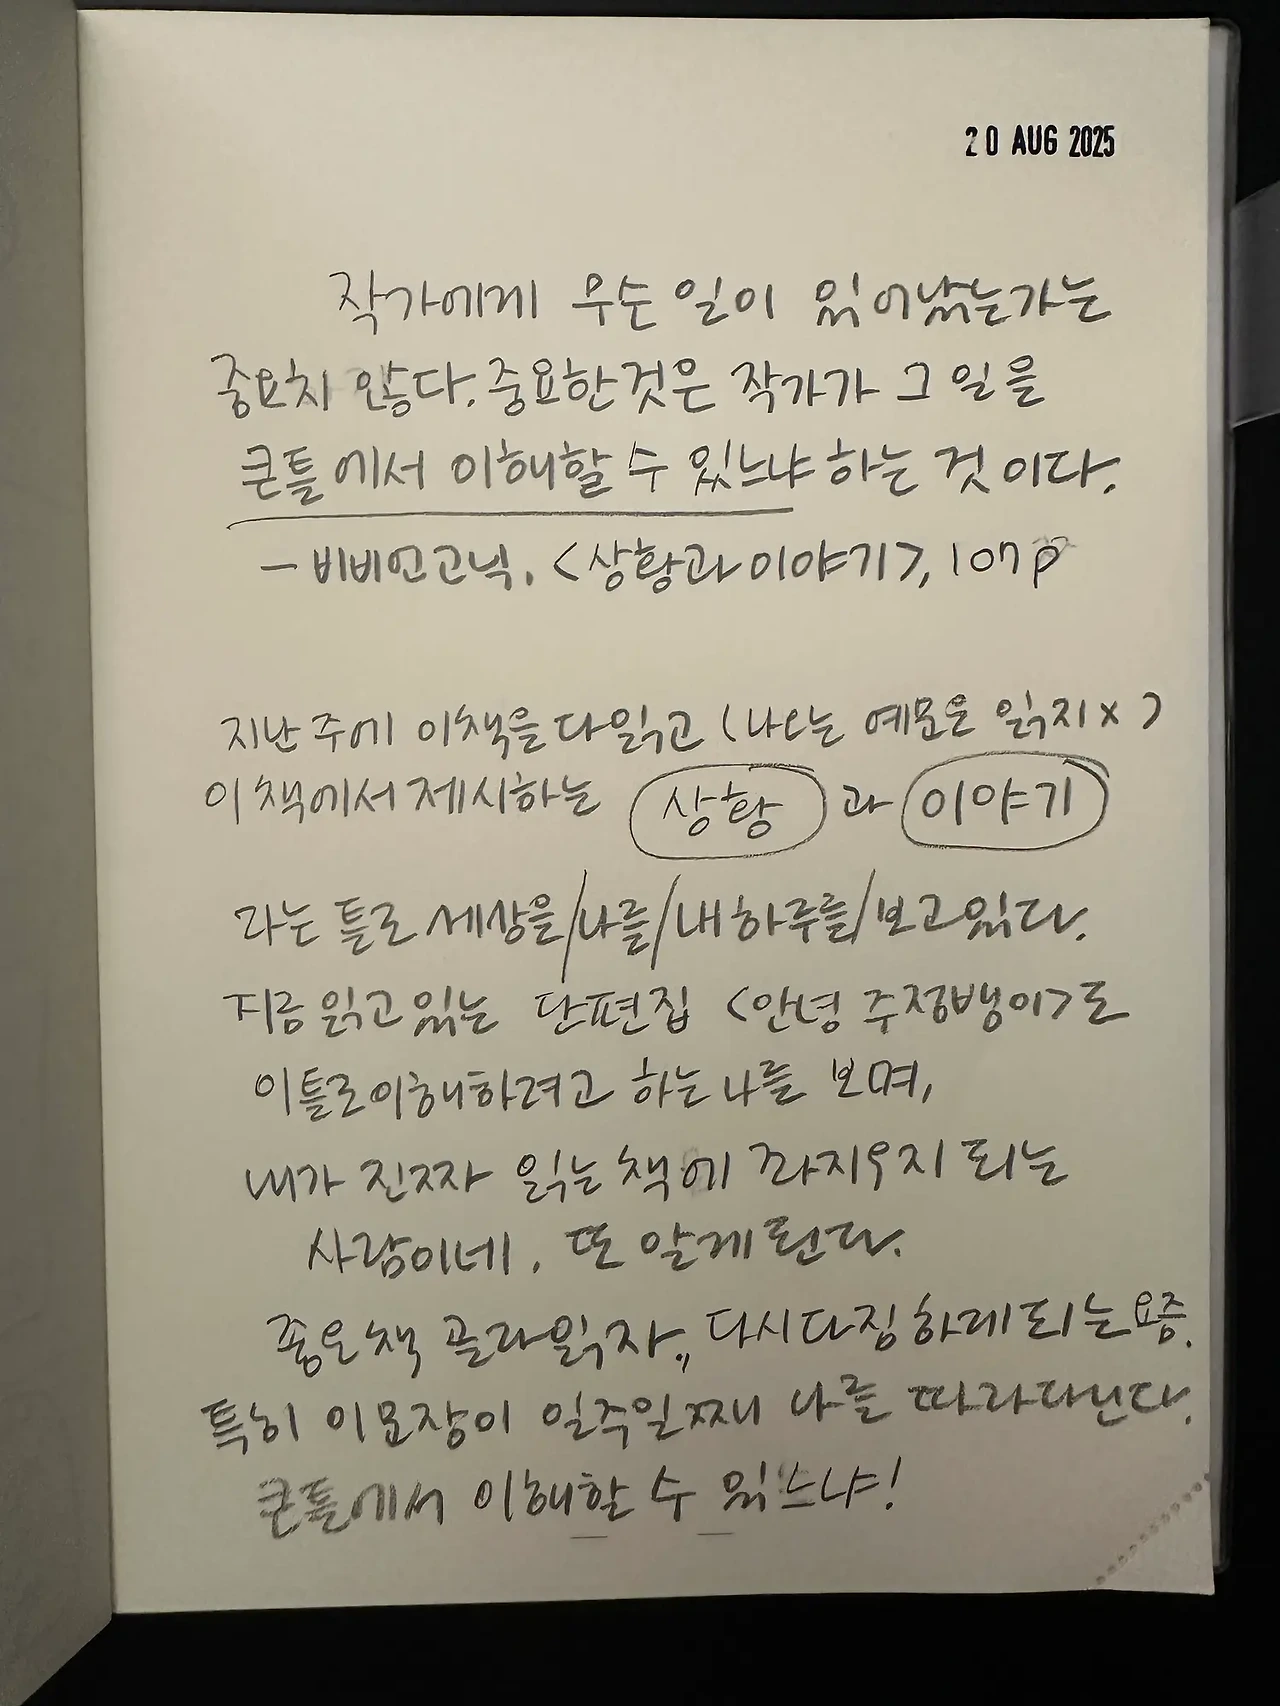 20 AUG 2025
작가에게 무슨 일이 일어났는가는
중요치 않다. 중요한 것은 작가가 그 일을
큰 틀에서 이해할 수 있느냐 하는 것이다.
- 비비언 고닉. <상황과 이야기>, 107p
지난주에 이 책을 다 읽고 (나는 예문은 읽지 x)
이 책에서 제시하는 상황 과 이야기
라는 틀로 세상을/나를/내 하루를/보고 있다.
지금 읽고 있는 단편집 <안녕 주정뱅이>도
이 틀로 이해하려고 하는 나를 보며,
내가 진짜 읽는 책에 좌지우지 되는
사람이네. 또 알게 된다.
좋은 책 골라 읽자,, 다시 다짐하게 되는 요즘.
특히 이 문장이 일주일째 나를 따라다닌다.
큰 틀에서 이해할 수 있느냐!